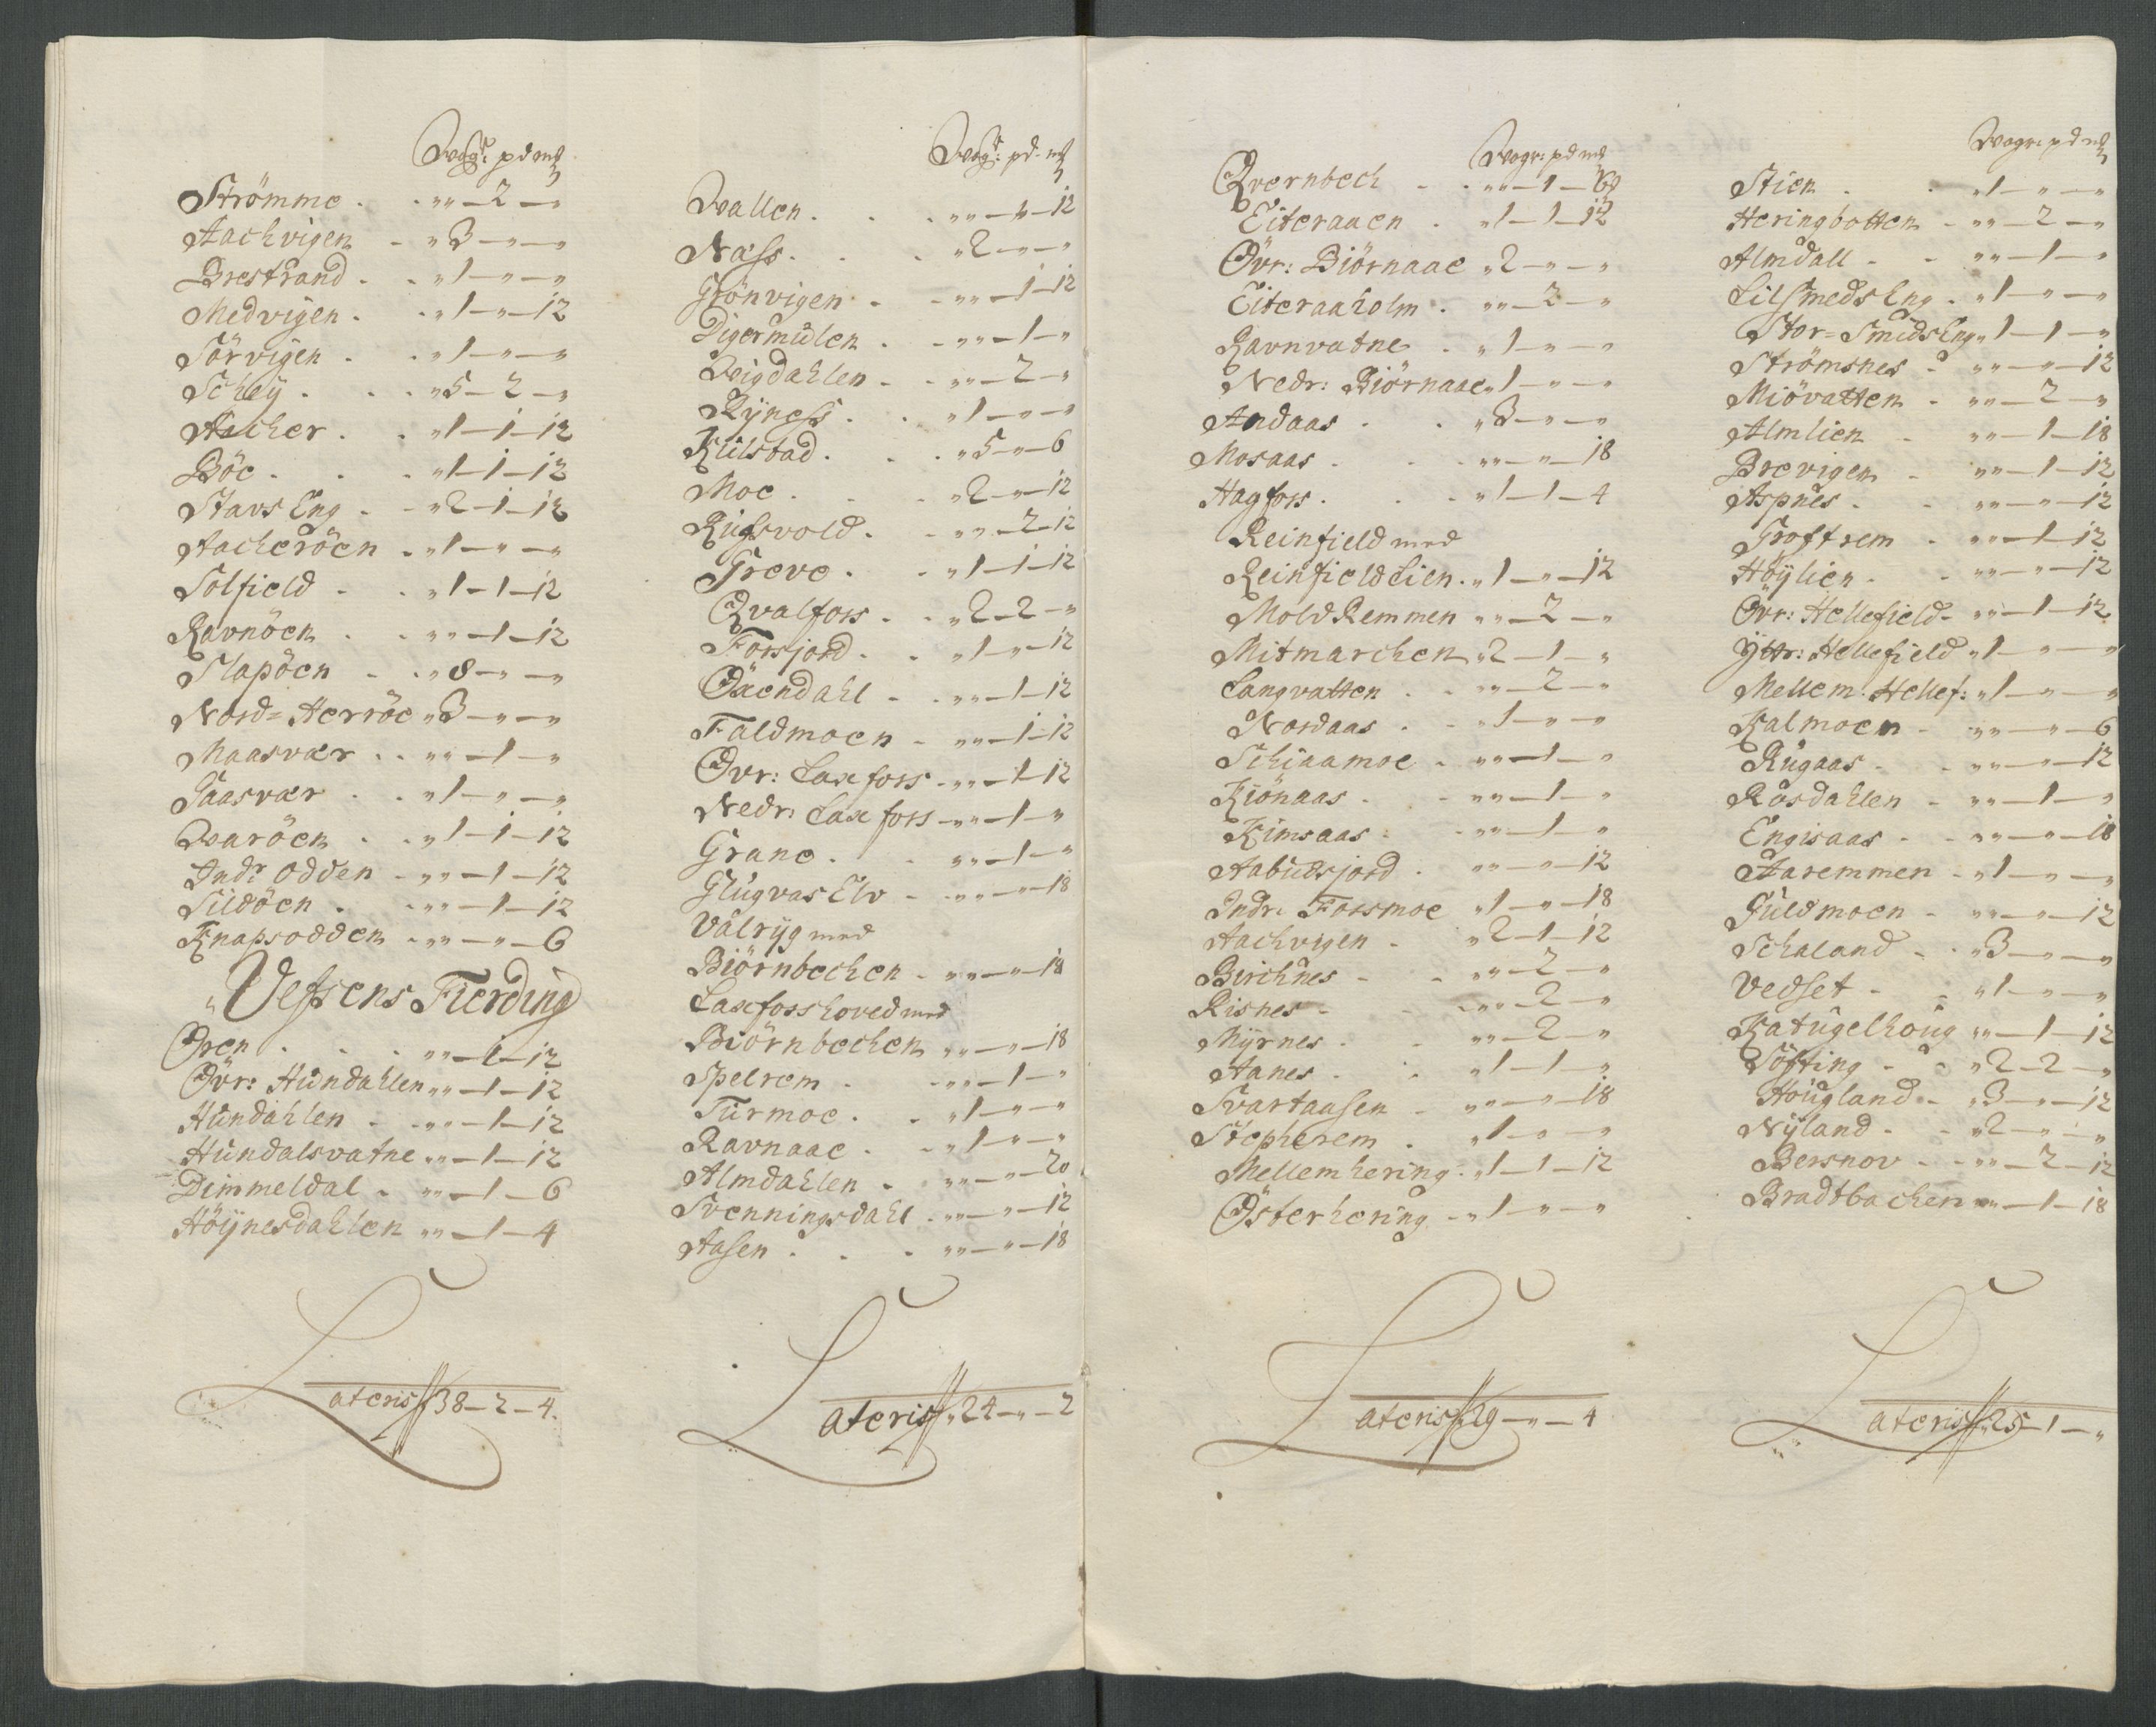 Wogr: pd mk
Strömme . . „„ — 2 — „
Aachvigen - „ 3 — „ — „
Brestrand . . „ 1 — „ — „
Medvigen . . „ 1 — „ — 12
Sörvigen . . „ 1 — „ — „
Schey . . . „ 5 — 2 — „
Aacher . . „ 1 — 1 — 12
Böe . . . „ 1 — 1 — 12
Stavs Eng . - „ 2 — 1 — 12
Aacheröen . „ 1 — „ — „
Solfield - . „ 1 — 1 — 12
Ravnöen . . „„ — 1 — 12
Slapöen - . „ 8 — „ — „
Nord= Herröe „ 3 — „ — „
Maasvær . . „„ — 1 — „
Saasvær . . „ 1 — „ — „
Waröen . . „ 1 — 1 — 12
Indr Odden - „„ — 1 — 12
Sildöen . . „„ — 1 — 12
Knapsodden . „„ — „ — 6
Vefsens Fierding
Ören . . . „„ — 1 — 12
Övr: Hundahlen „„ — 1 — 12
Hundahlen . . „„ — 1 — 12
Hundalsvatne „„ — 1 — 12
Dimmeldal . „„ — 1 — 6
Höynesdahlen „„ — 1 — 4
Lateris 38 — 2 — 4.
Wogr: pd mk
Wallen . . . „„ — 1 — 12
Næss . . . „ 2 — „ — „
Grönvigen . - „„ — 1 — 12
Digermulen . - „„ — 1 — „
Wigdahlen - . „„ — 2 — „
Ryness . . „ 1 — „ — „
Kulstad . . . „ 5 — „ — 6
Moe . . . „ 2 — „ — 12
Rufsvold . - „„ — 2 — 12
Greve . - „ 1 — 1 — 12
Qvalfoss . . „ 2 — 2 — „
Forsjord . . „ 1 — „ — 12
Öxendahl - . „„ — 1 — 12
Faldmoen - „„ — 1 — 12
Övr: Laxfoss - „„ — 1 — 12
Nedr: Laxfoss - „„ — 1 — „
Grane . . „„ — 1 — „
Glugvas Elv - „„ — „ — 18
Valryg med
Biörnbechen - „„ — „ — 18
Laxefosshoved med
Biörnbechen „„ — „ — 18
Spelrem . - „„ — 1 — „
Turmoe . . „ 1 — „ — „
Ravnaae . . „ 1 — „ — „
Almdahlen . „„ — „ — 20
Svenningsdahl . „„ — „ — 12
Aasen . . . „„ — „ — 18
Lateris „ 24 — „ — 2
Wogr: pd mk
Qvernbech - . „„ — 1 —
Eiteraaen . „ 1 — 1 — 12
Övr: Biörnaae „ 2 — „ — „
Eiteraaholm . „„ — 2 — „
Ravnvatne . „ 1 — „ — „
Nedr: Biörnaae „ 1 — „ — „
Andaas . . „ 3 — „ — „
Mosaas . . . „„ — „ — 18
Hagfoss . . . „ 1 — 1 — 4
Reinfield med
Reinfieldlien . „ 1 — „ — 12
MoldRemmen „„ — 2 — „
Mitmarchen „ 2 — 1 — „
Langvatten . . „„ — 2 — „
Nordaas . . „ 1 — „ — „
Schiaamoe . „„ — 1 — „
Kiönaas . - „„ — 1 — „
Kimsaas . . „„ — 1 — „
Aabudsjord . „„ — „ — 12
Indr. Forsmoe „ 1 — „ — 18
Aachvigen . „ 2 — 1 — 12
Birchnes - - „„ — 2 — „
Risnes - . „„ — 2 — „
Myrnes . . „„ — 2 — „
Aanes . . „ 1 — 1 — „
Svartaasen - „„ — „ — 18
Stepherem . „ 1 — „ — „
Mellemhering . „ 1 — 1 — 12
Österhering - „ 1 — „ — „
Lateris „ 29 — „ — 4
Wogr: pd mk
Stien . . „ 1 — „ — „
Heringbotten - „„ — 2 — „
Almdall - - „„ — 1 — „
LilSmedsEng . „ 1 — „ — „
Stor=SmidsEng „ 1 — 1 — „
Strömsnes - „„ — „ — 12
Miövatten . „„ — 2 — „
Almlien - „„ — 1 — 18
Brevigen - „„ — 1 — 12
Aspnes . . „„ — „ — 12
Groftrem - „„ — 1 — 12
Höylien . . „„ — „ — 12
Övr: Hellefield - „„ — 1 — 12
Yttr: Hellefield „ 1 — „ — „
Mellem Hellef: „ 1 — „ — „
Kalmoen - „„ — „ — 6
Rugaas - . „„ — „ — 12
Rosdahlen - „„ — 1 — „
Engisaas . - „„ — „ — 18
Aaremmen - „ 1 — „ — „
Guldmoen - „„ — „ — 12
Schaland - . „ 3 — „ — „
Vedset - . „ 1 — „ — „
Katugelhoug „„ — 1 — 12
Söfting - - „ 2 — 2 — „
Hougland - „ 3 — „ — 12
Nyland . - „ 2 — „ — „
Bersnov - - „„ — 2 — 12
Bradtbachen „„ — 1 — 18
Lateris „ 25 — 1 — „